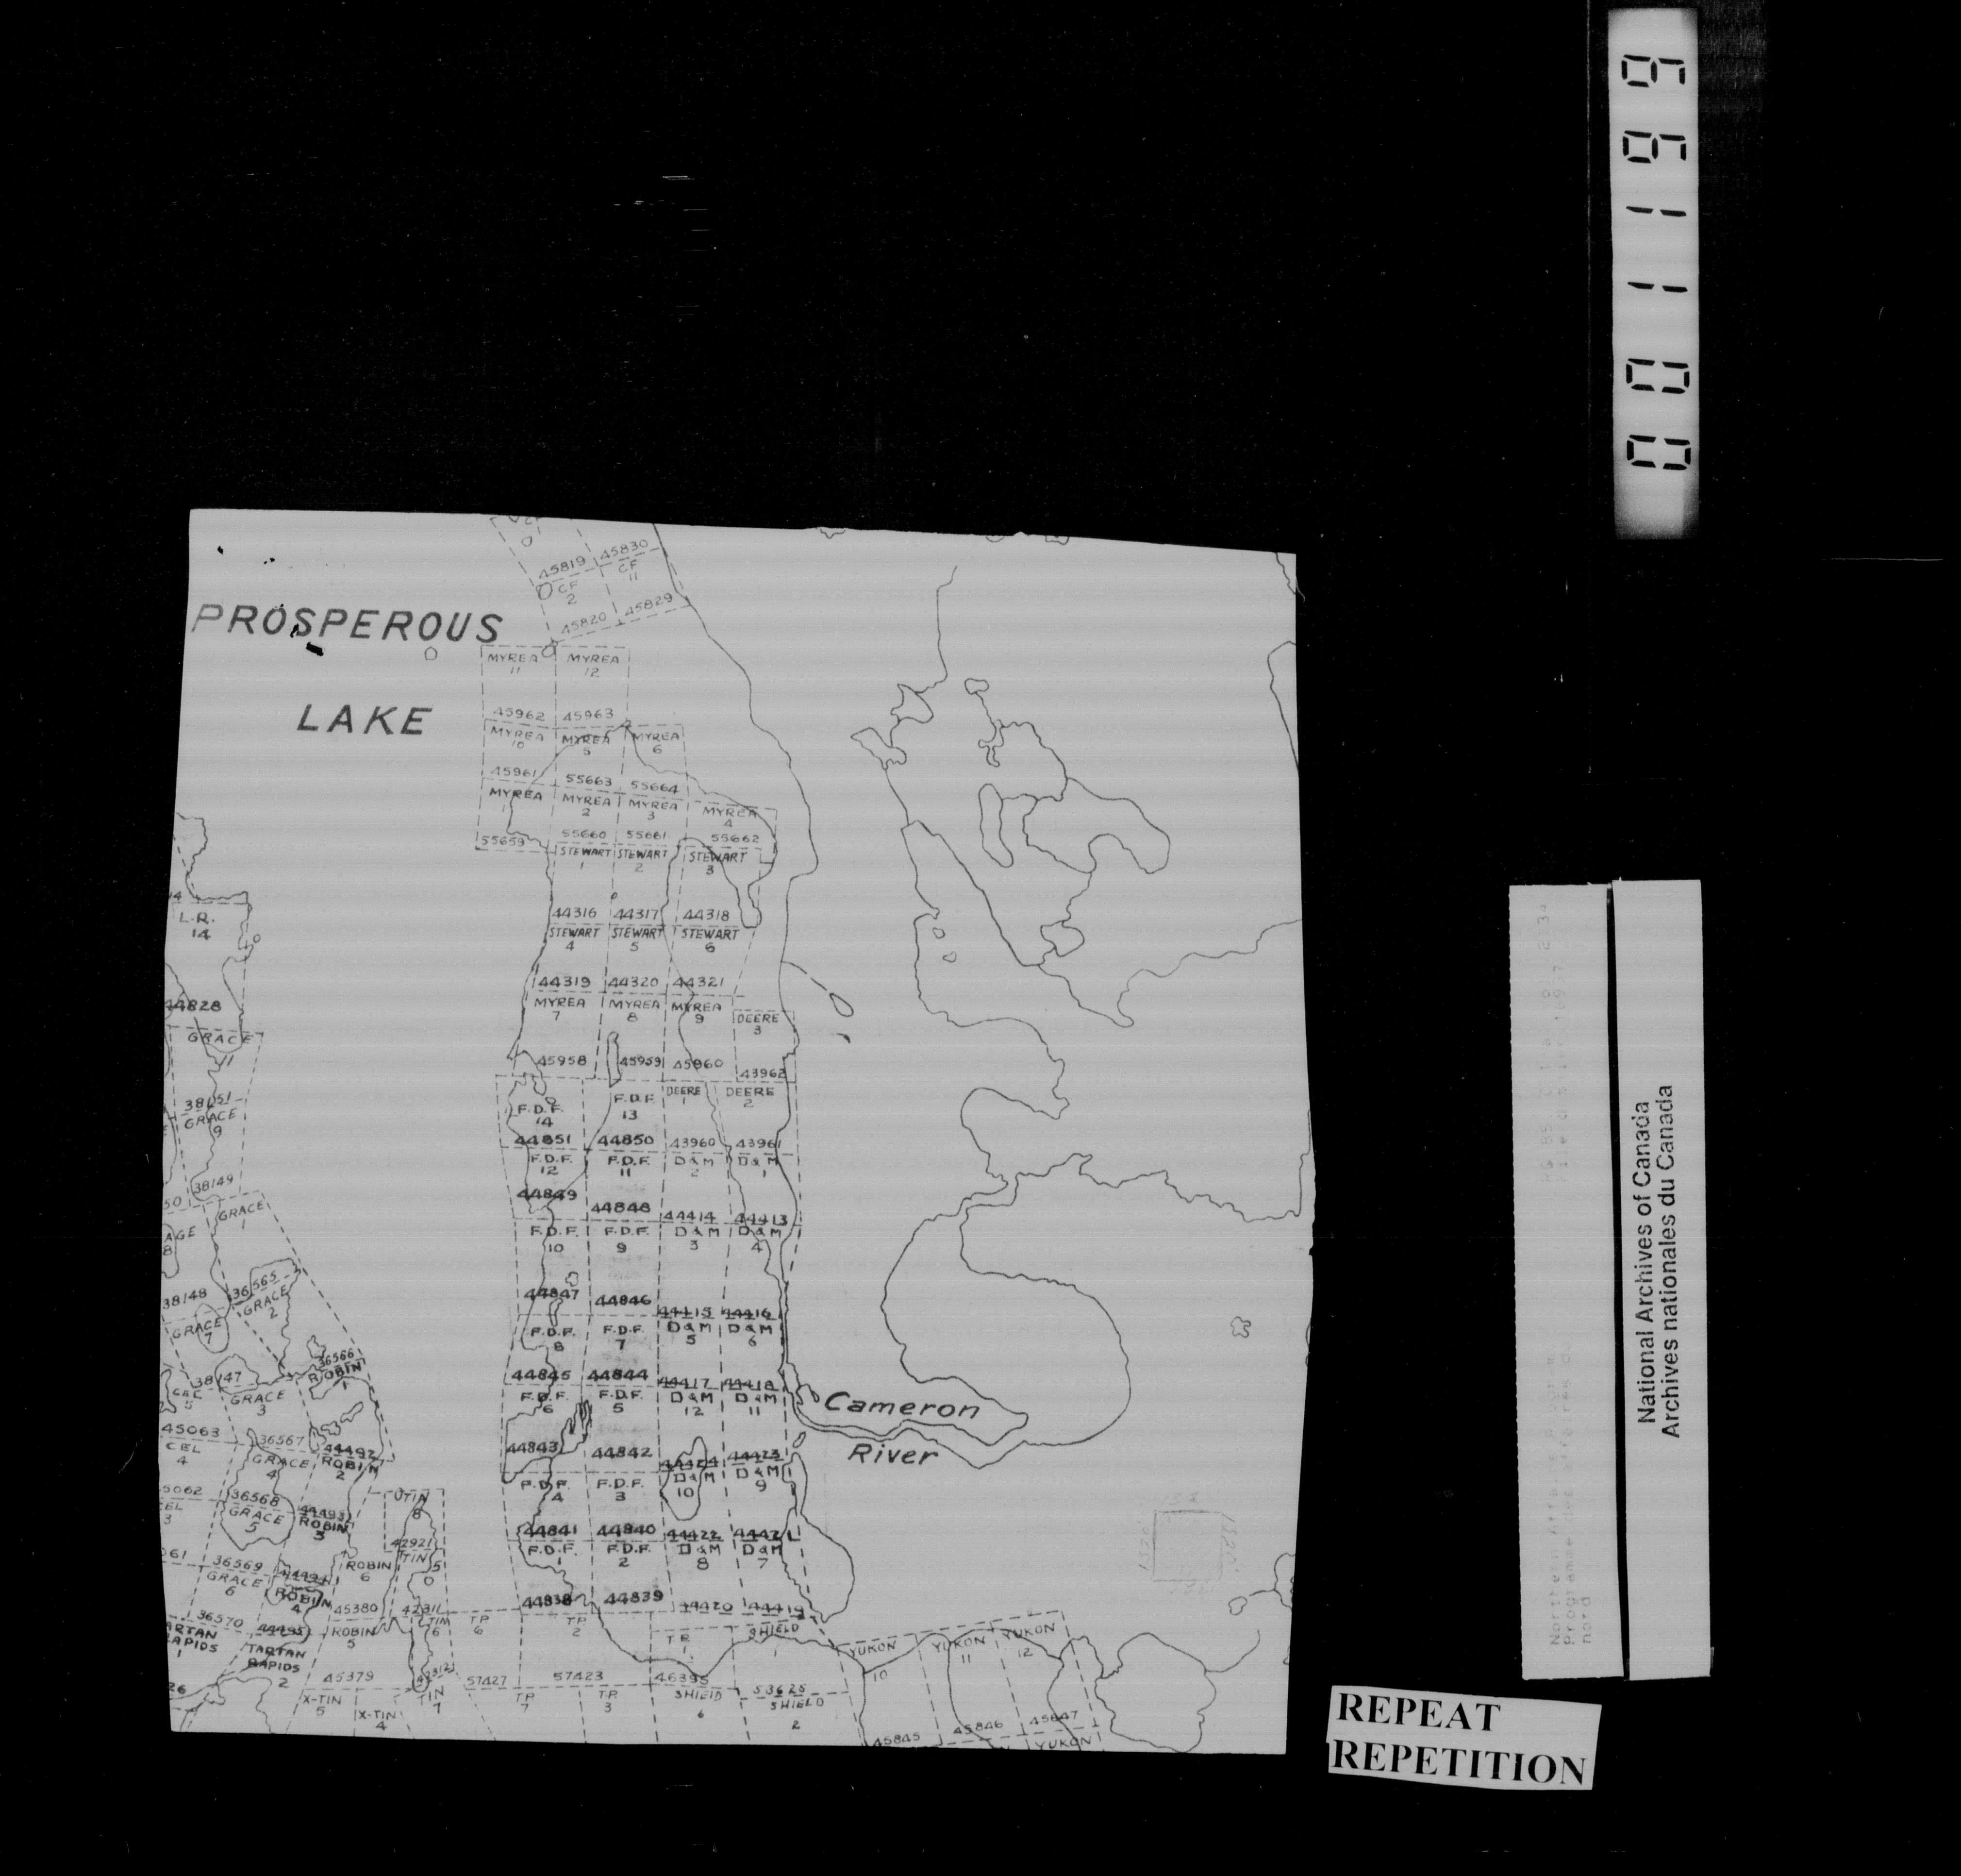 PROSPEROUS
LAKE
45819
45830
CF
11
CF
2
45820
45829
MYREA
11
MYREA
12
45962
45963
MYREA
10
MYREA
5
MYREA
6
45961
55663
55664
MYREA
1
MYREA
2
MYREA
3
MYREA
4
55659
55660
55661
55662
STEWART
1
STEWART
2
STEWART
3
44316
44317
44318
STEWART
4
STEWART
5
STEWART
6
44319
44320
44321
MYREA
7
MYREA
8
MYREA
9
DEERE
3
45958
45959
45960
43962
F.D.F.
14
F.D.F.
13
DEERE
1
DEERE
2
44851
44850
43960
43961
F.D.F.
12
F.D.F.
11
D&M
2
D&M
1
44849
44848
44414
44413
F.D.F.
10
F.D.F.
9
D&M
3
D&M
4
44847
44846
44415
44416
F.D.F.
8
F.D.F.
7
D&M
5
D&M
6
44845
44844
44417
44418
F.D.F.
6
F.D.F.
5
D&M
12
D&M
11
44843
44842
44424
44423
F.D.F.
4
F.D.F.
3
D&M
10
D&M
9
44841
44840
44422
44421
F.D.F.
1
F.D.F.
2
D&M
8
D&M
7
44838
44839
44420
44419
Cameron
River
14
L.R.
14
44828
GRACE
11
38151
GRACE
9
38149
50
GRACE
1
AGE
8
38148
36565
GRACE
2
GRACE
7
38147
36566
ROBIN
1
CEL
5
GRACE
3
45063
CEL
4
36567
GRACE
4
44492
ROBIN
2
5062
EL
3
36568
GRACE
5
44493
ROBIN
3
061
36569
GRACE
6
44494
ROBIN
4
ROBIN
6
TIN
8
42921
TIN
5
36570
44495
45380
42311
ARTAN
RAPIDS
1
TARTAN
RAPIDS
2
ROBIN
5
TIN
6
T.P.
6
T.P.
2
T.P.
1
SHIELD
1
26
45379
57427
57423
46395
53625
X-TIN
5
X-TIN
4
TIN
7
T.P.
7
T.P.
3
SHIELD
6
SHIELD
2
YUKON
10
YUKON
11
YUKON
12
45845
45846
45847
YUKON
001199
National Archives of Canada
Archives nationales du Canada
REPEAT
REPETITION